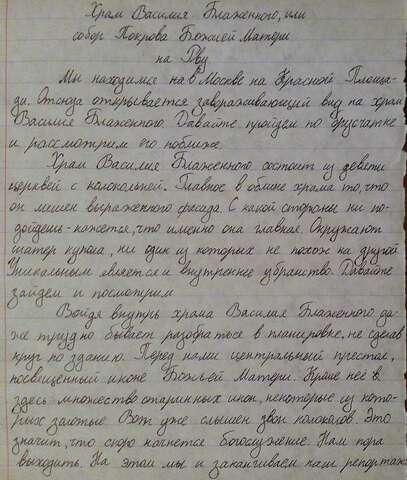 Храм Василия Блаженного, или
собор Покрова Божией Матери
на Рву
Мы находимся на в Москве на Красной Площа-
ди. Отсюда открывается завораживающий вид на храм
Василия Блаженного. Давайте пройдем по брусчатке
и рассмотрим его поближе.
Храм Василия Блаженного состоит из девяти
церквей с колокольней. Главное в облике храма то, что
он лишен выраженного фасада. С какой стороны ни по-
дойдешь - кажется, что именно она главная. Окружают
шатер купола, ни один из которых не похож на другой
Уникальным является и внутреннее убранство. Давайте
зайдем и посмотрим
Войдя внутрь храма Василия Блаженного да-
же трудно бывает разобраться в планировке, не сделав
круг по зданию. Перед нами центральный престол,
посвещенный иконе Божьей Матери. Кроме неё в
здесь множество старинных икон, некоторые из кото-
рых золотые. Вот уже слышен звон колоколов. Это
значит, что скоро начнется богослужение. Нам пора
выходить. На этом мы и заканчиваем наш репортаж